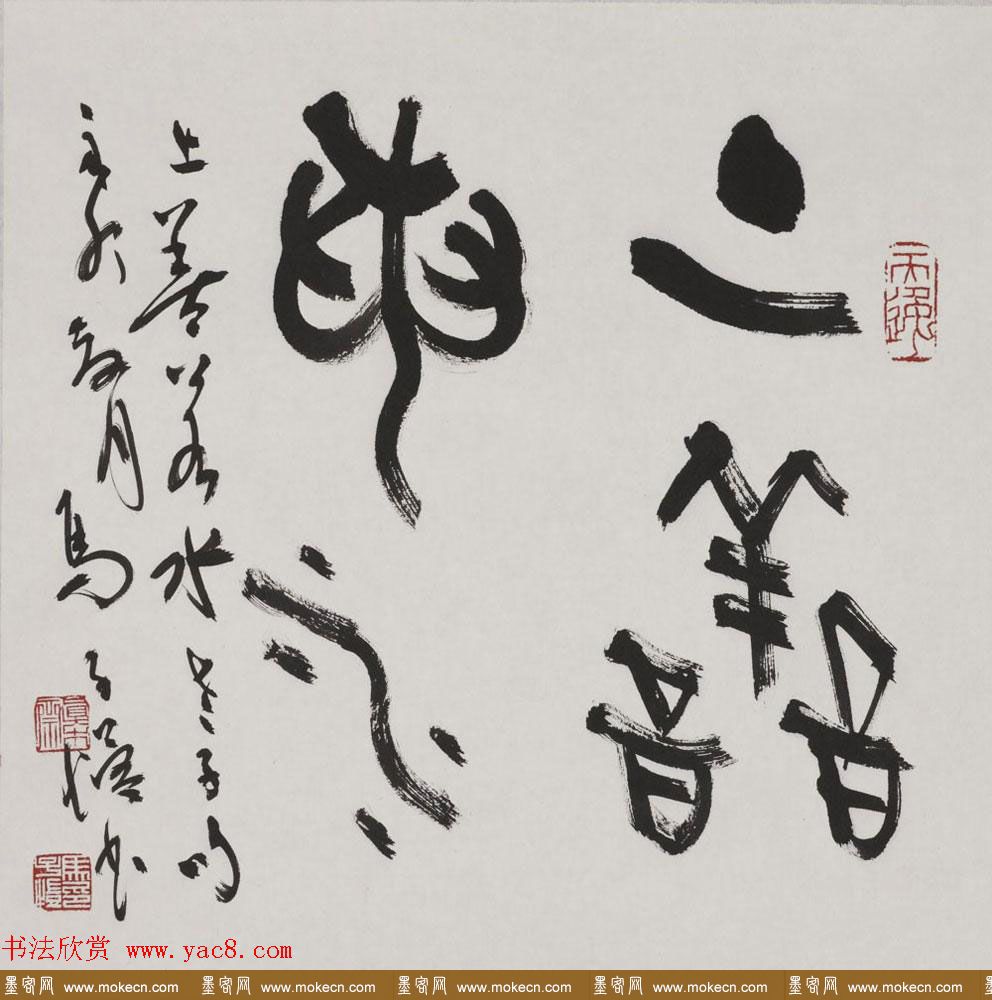 上善
若水
上善若水老子句
辛卯春月馬子愷书
馬子愷印
书法欣赏 www.yac8.com
墨客网 www.mokecn.com 墨客网 www.mokecn.com 墨客网 www.mokecn.com 墨客网 www.mokecn.com 墨客网 www.